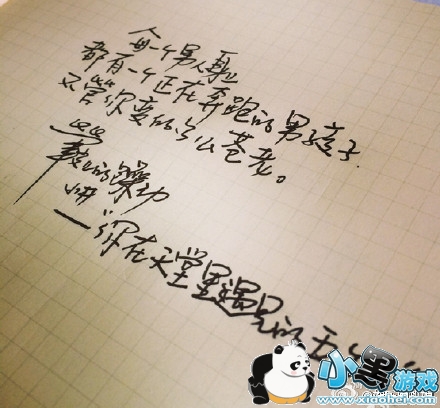 每一个男人
都有一个正在奔跑的男孩子.
不管你变的多么苍老。
的躁动
—你在天堂里遇见的五个
小黑游戏
www.xiaohei.com